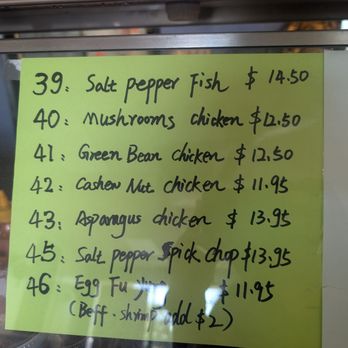 39: Salt pepper Fish $ 14.50
40: Mushrooms chicken $12.50
41: Green Bean chicken $ 12.50
42: Cashew Nut chicken $ 11.95
43: Asparagus chicken $ 13.95
45: Salt pepper Spick chop $13.95
46: Egg Fu $ 11.95
(Beff. shrimp add $2)